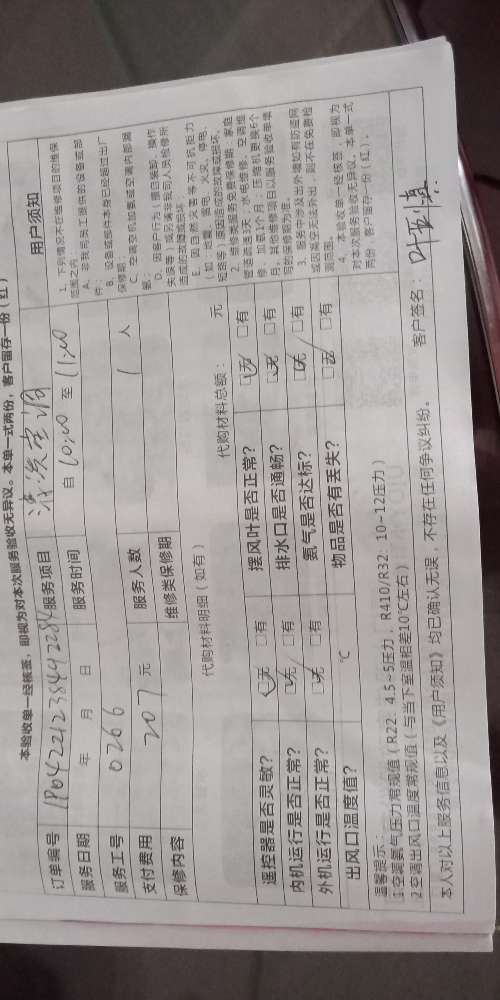 本验收单一经核签，即视为对本次服务验收无异议。本单一式两份，客户留存一份（红）
订单编号 服务项目 清洗空调
服务日期 年 月 日 服务时间 自 10:00 至 11:00
服务工号 0266 服务人数 1 人
支付费用 207 元 维修类保修期
保修内容
代购材料明细（如有） 代购材料总额： 元
遥控器是否灵敏？ 无 有 摆风叶是否正常？ 无 有
内机运行是否正常？ 无 有 排水口是否通畅？ 无 有
外机运行是否正常？ 无 有 氨气是否达标？ 无 有
出风口温度值？ ℃ 物品是否有丢失？ 无 有
用户须知
1、下列情况不在维修项目的维保
范围之内：
A、非我司员工提供的设备或部
件；
B、设备或部件本身已经超过出厂
保修期；
C、空调空机加氨或空调内部漏
氨；
D、因客户行为（擅自装卸、操作
失误等）或另行非我司人员检修所
造成的故障或损坏
E、因自然灾害等不可抗拒力
（如：地震、雷电、火灾、停电、
短路等）原因造成的故障或损坏。
2、维修类服务免费保修期：家庭
管道疏通3天；水电维修、空调维
修、加氨1个月；压缩机更换6个
月，其他维修项目以服务验收单填
写的保修期为准。
3、服务中涉及出外墙如有防盗网
或因高空无法外出，则不在免费检
测范围。
4、本验收单一经核签，即视为
对本次服务验收无异议。本单一式
两份，客户留存一份（红）。
温馨提示：
1空调氨气压力常规值（R22、4.5~5压力，R410/R32、10-12压力）
2空调出风口温度常规值（与当下室温相差10℃左右）
本人对以上服务信息以及《用户须知》均已确认无误，不存在任何争议纠纷。 客户签名：